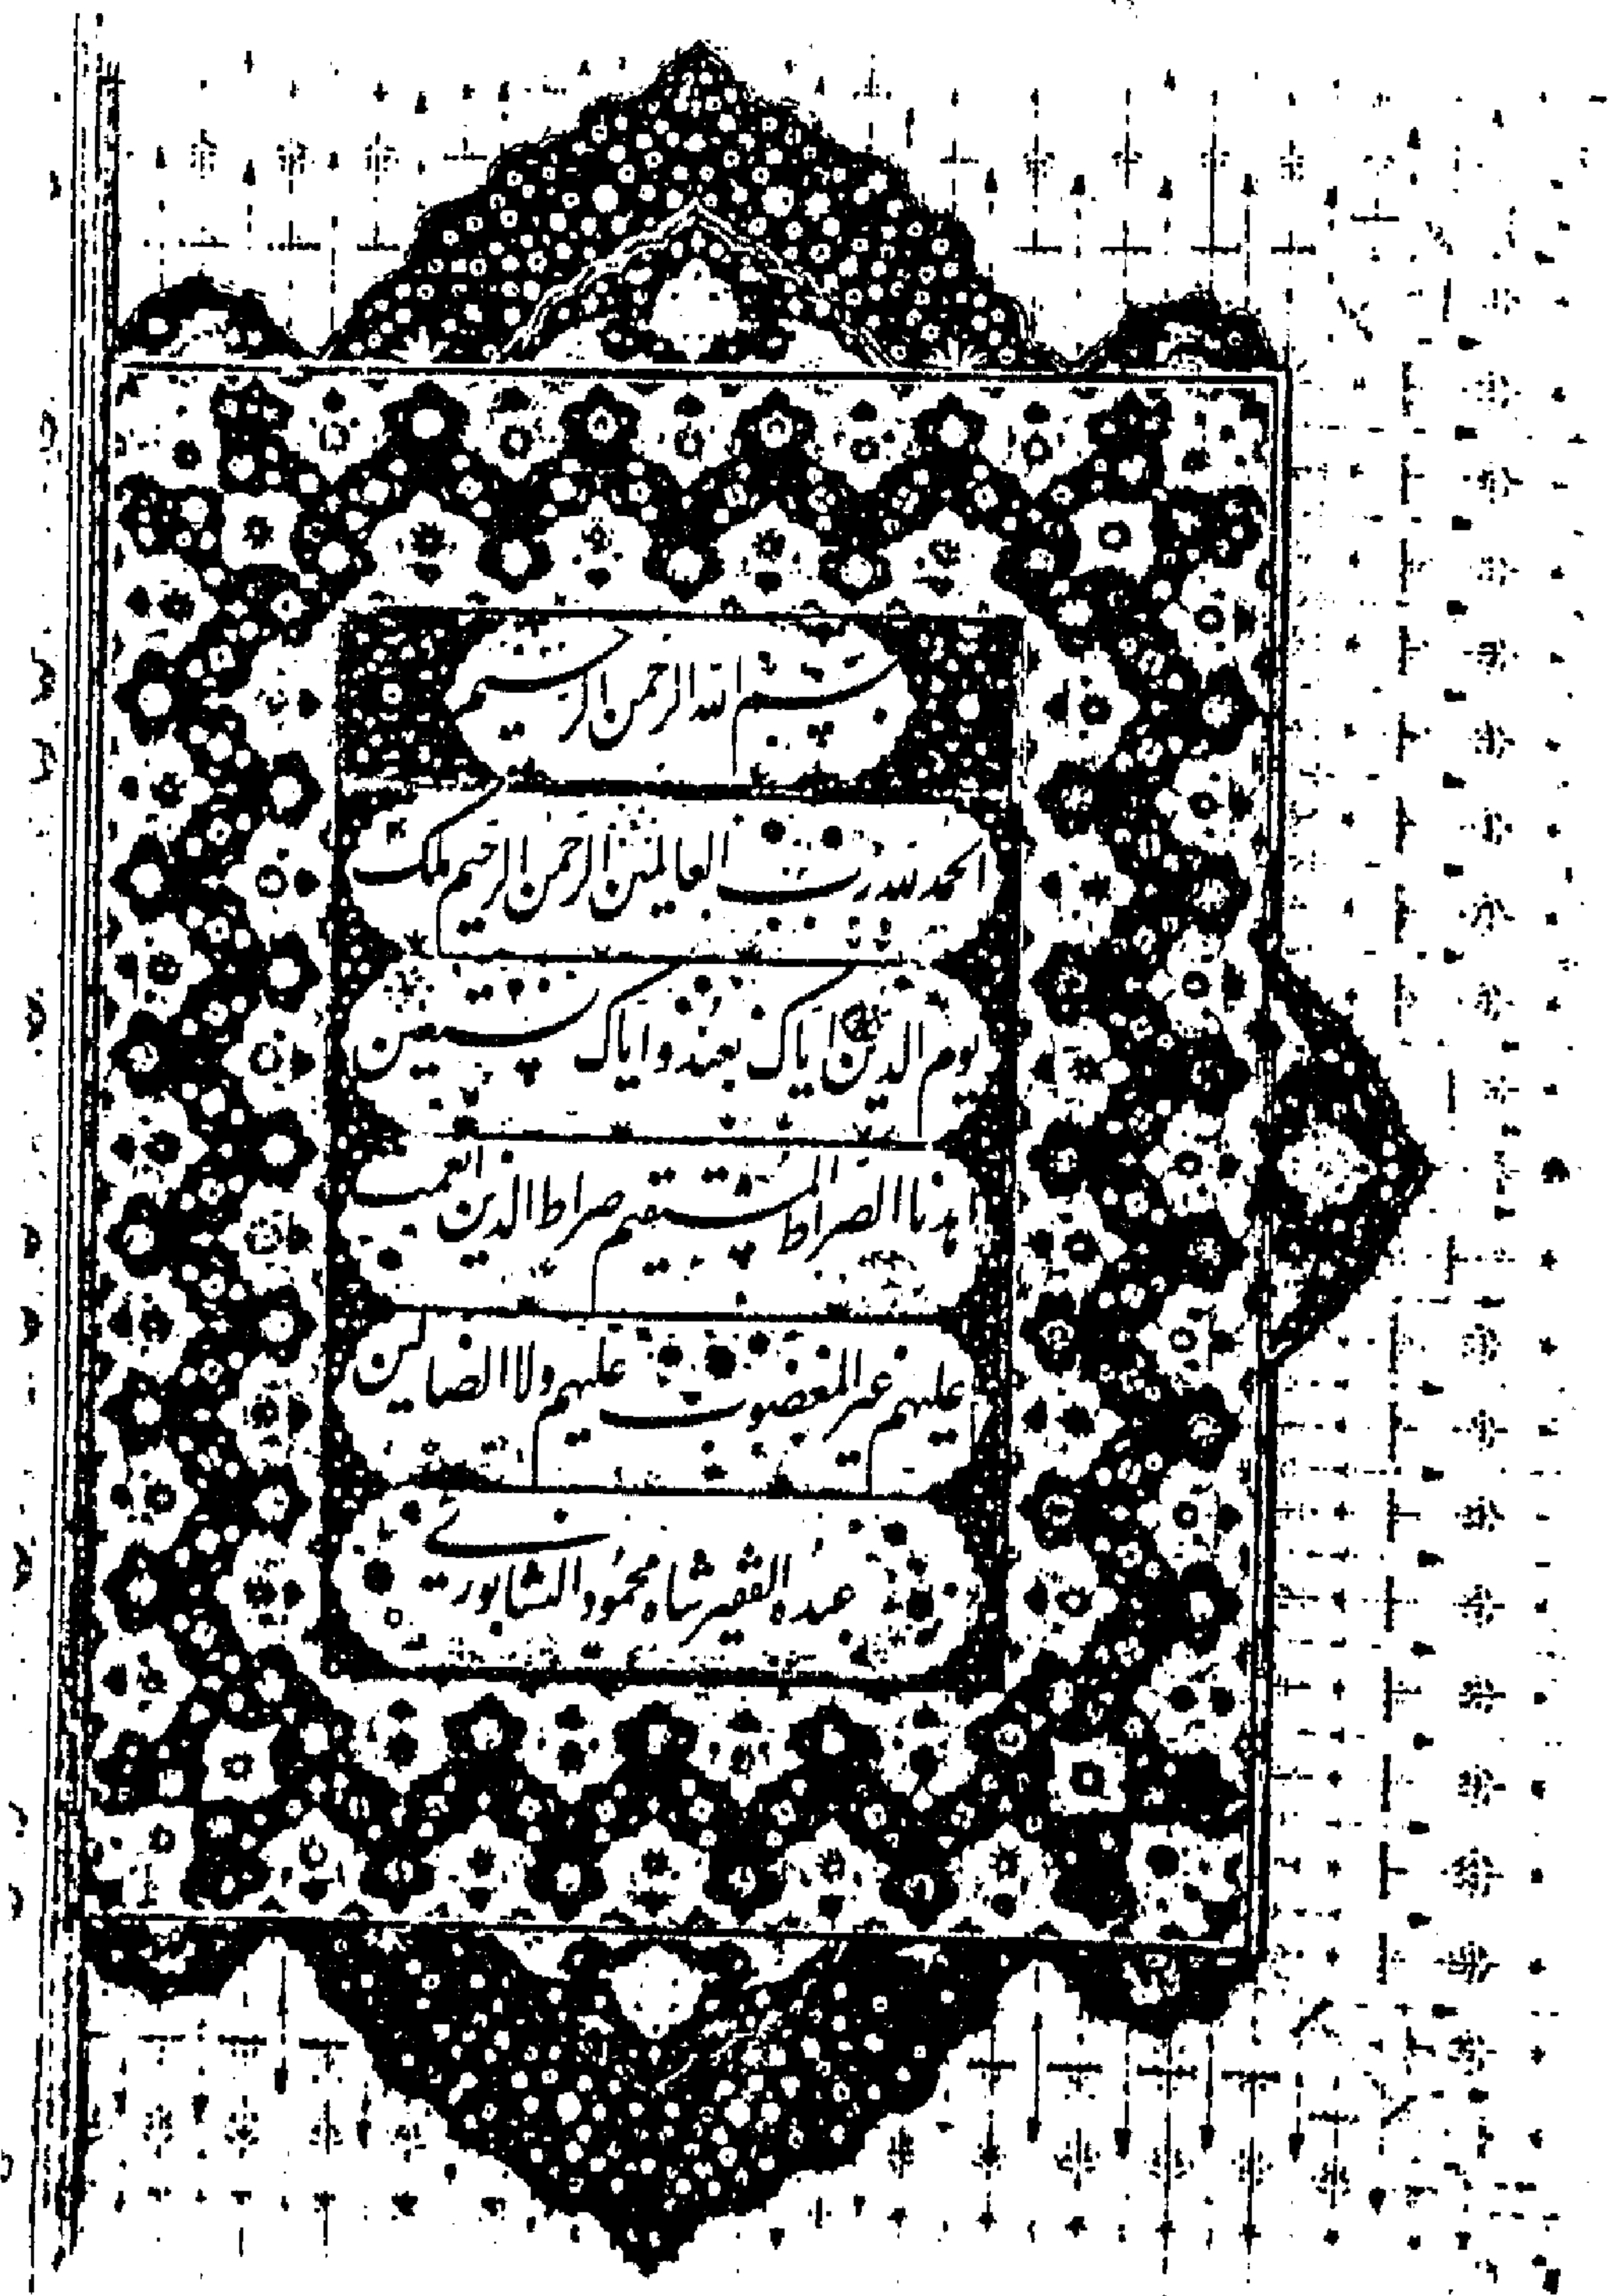 بسم الله الرحمن الرحيم
الحمد لله رب العالمين الرحمن الرحيم ملك
يوم الدين اياك نعبد واياك نستعين
اهدنا الصراط المستقيم صراط الذين انعمت
عليهم غير المغضوب عليهم ولا الضالين
عبده الفقير شاه محمود النيشابوري